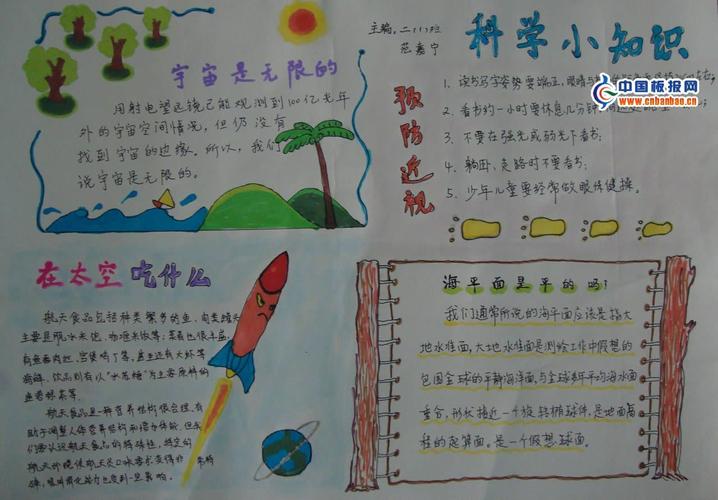 主编:二(1)班
范嘉宁
科学小知识
宇宙是无限的
用射电望远镜已能观测到100亿光年
外的宇宙空间情况,但仍没有
找到宇宙的边缘。所以,我们
说宇宙是无限的。
预防近视
1、读书写字姿势要端正,眼睛与
2、看书约一小时要休息几分钟
3、不要在强光或弱光下看书;
4、躺卧、走路时不要看书;
5、少年儿童要经常做眼保健操。
中国板报网
www.cnbanbao.cn
在太空吃什么
航天食品包括种类繁多的鱼、肉类罐头
主要是脱水米饭、咖喱米饭等;菜肴也很丰盛,
有鱼香肉丝、宫保鸡丁等,甚至还有大虾等
海鲜。饮品则有以
为主要原料的
航天食品是一种营养结构很合理、有
助于
海平面是平的吗?
我们通常所说的海平面应该是指大
地水准面,大地水准面是测绘工作中假想的
包围全球的平静海洋面,与全球多年平均海水面
重合,形状接近一个旋转椭球体,是地面高
程的起算面。是一个假想球面。